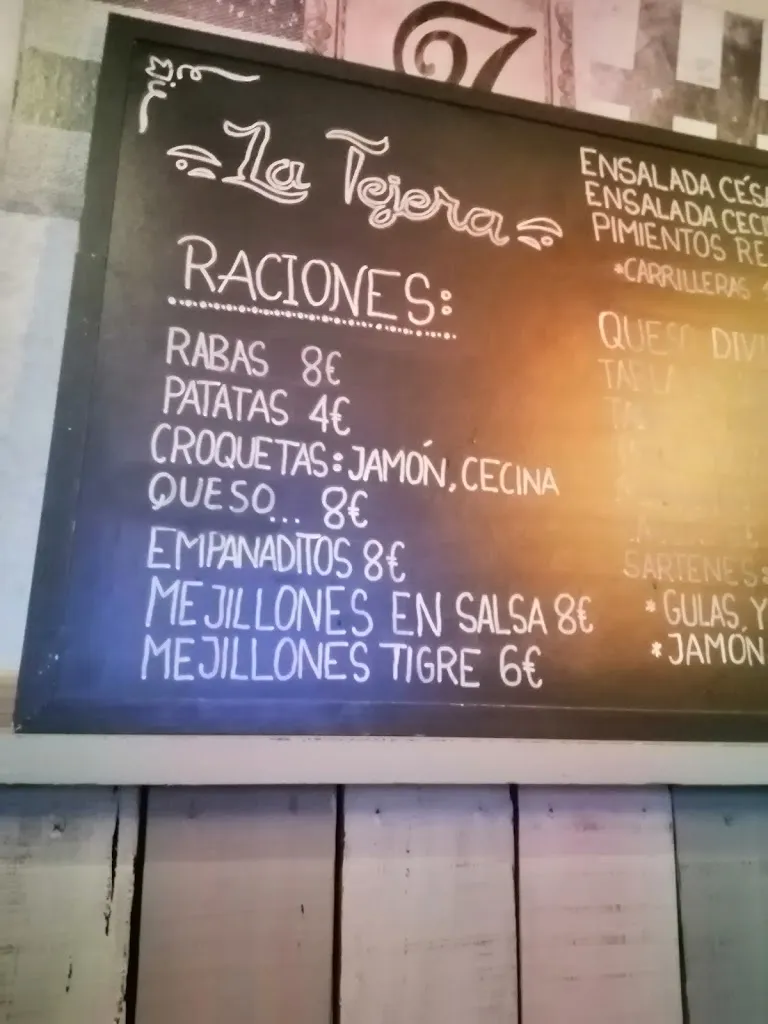 La Tejera
RACIONES:
RABAS 8€
PATATAS 4€
CROQUETAS: JAMÓN, CECINA
QUESO... 8€
EMPANADITOS 8€
MEJILLONES EN SALSA 8€
MEJILLONES TIGRE 6€
ENSALADA
ENSALADA
PIMIENTOS
*CARRILLERAS
QUESO
SARTENES:
*GULAS,
*JAMÓN